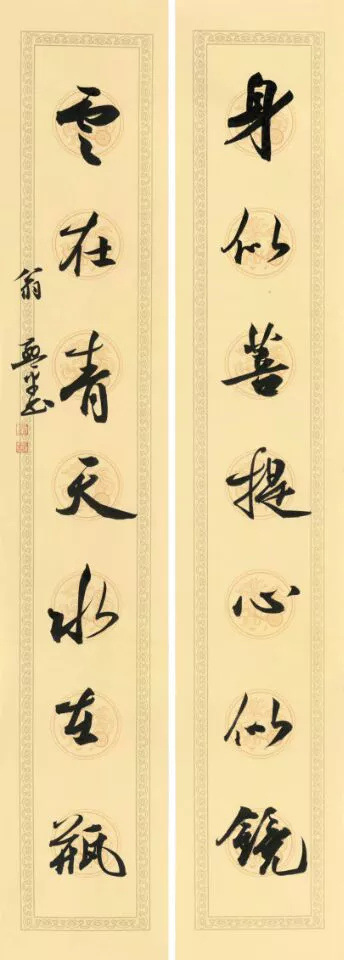 身似菩提心似鏡
雲在青天水在瓶
翁